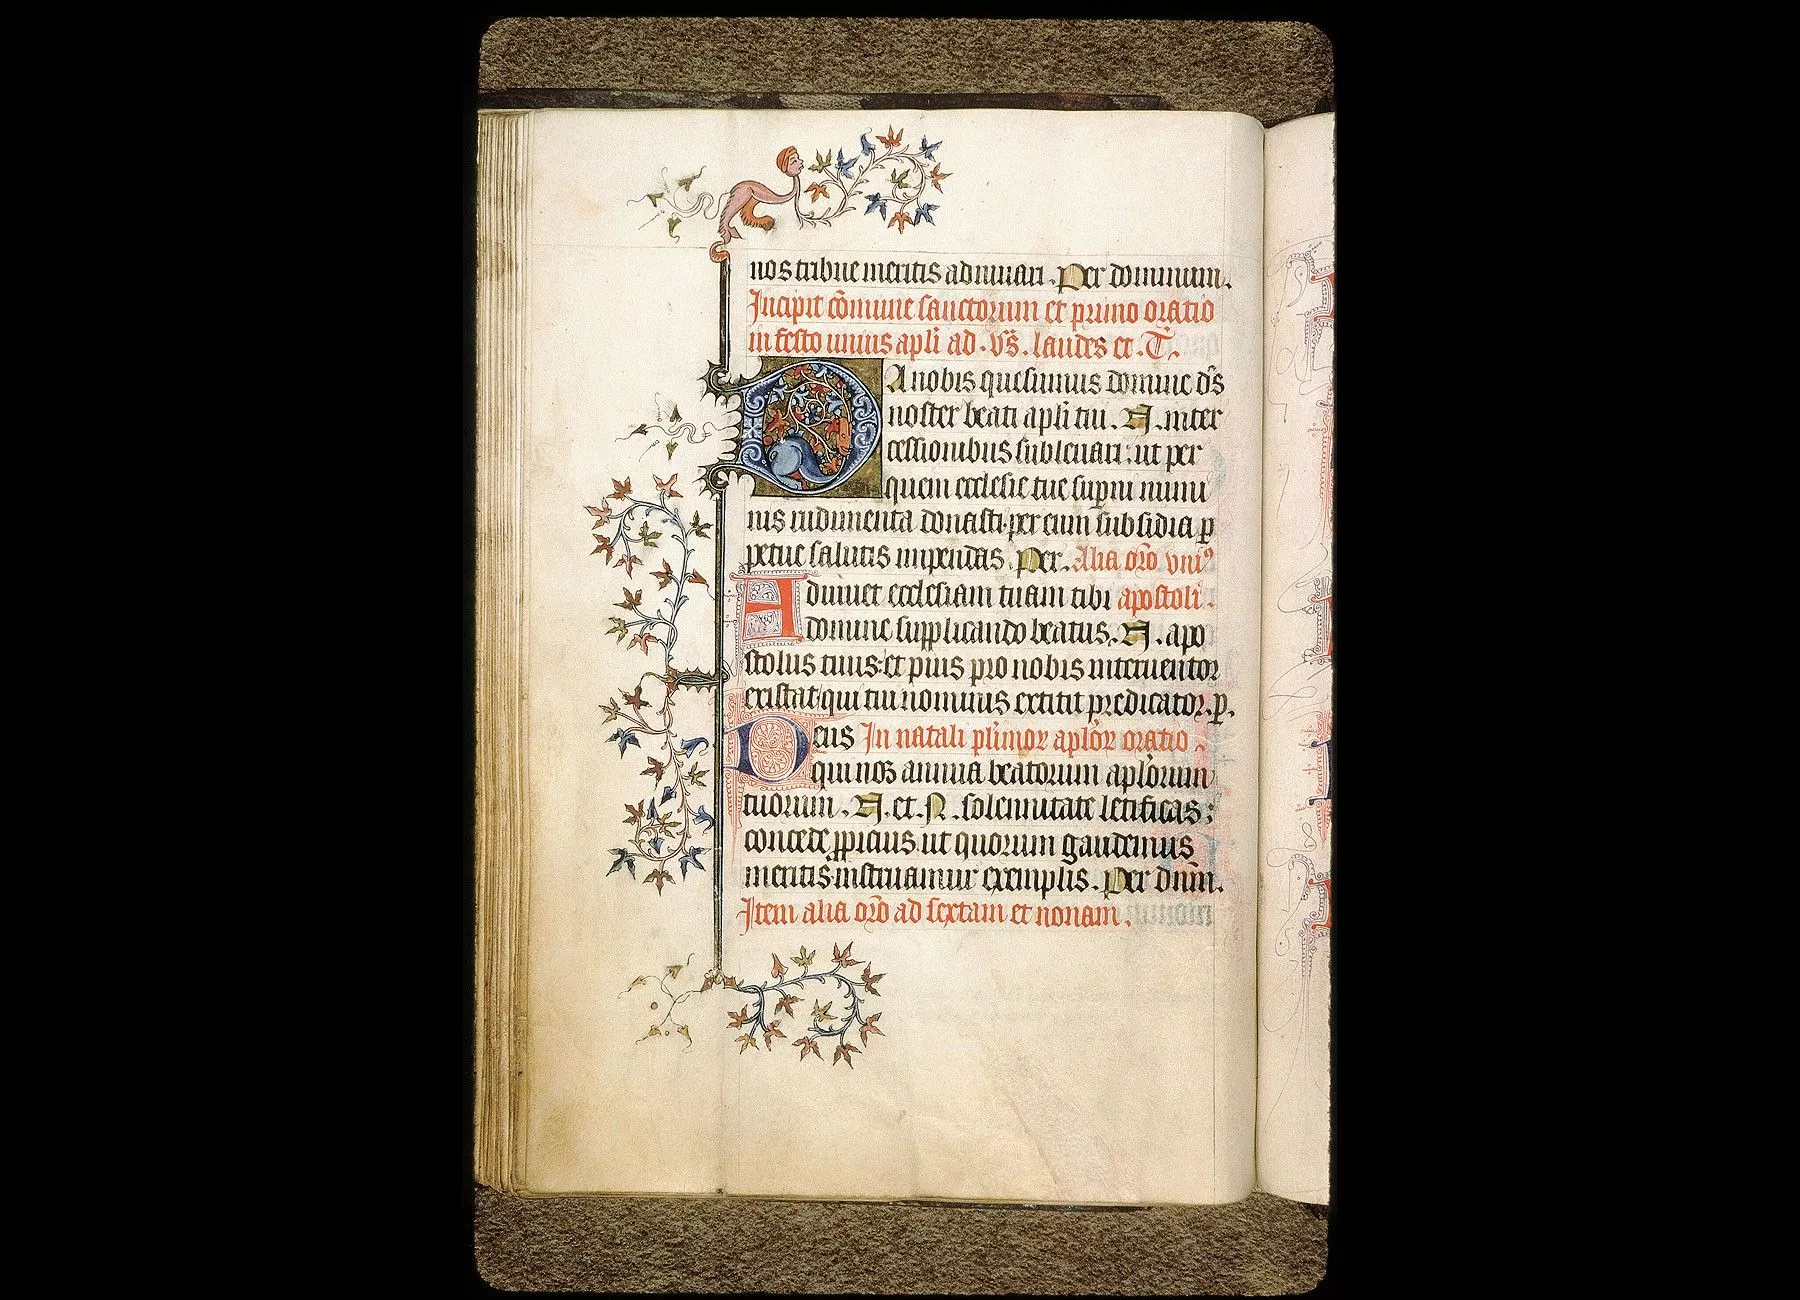 nos tribue meritis adiuuari. Per dominum.
Incipit cōmune sanctorum et primo oratio
in festo unius apli ad. vs̄. laudes et. T̄.
DA nobis quesumus domine ds̄
noster beati apli tui. N. inter
cessionibus subleuari: ut per
quem ecclesie tue supni mune
ris rudimenta donasti. per eum subsidia ꝑ
petue salutis impendas. Per. Alia oro vniꝰ
Adiuuet ecclesiam tuam tibi apostoli.
domine supplicando beatus. N. apo
stolus tuus: et pius pro nobis interuentor
existat. qui tui nominis extitit predicator. ꝑ.
Deus In natali plimoꝝ aploꝝ oratio
qui nos annua beatorum aplorum
tuorum. N. et. N. solennitate letificas;
concede ꝓpicius. ut quorum gaudemus
meritis instruamur exemplis. Per dnm̄.
Item alia oro ad sextam et nonam.